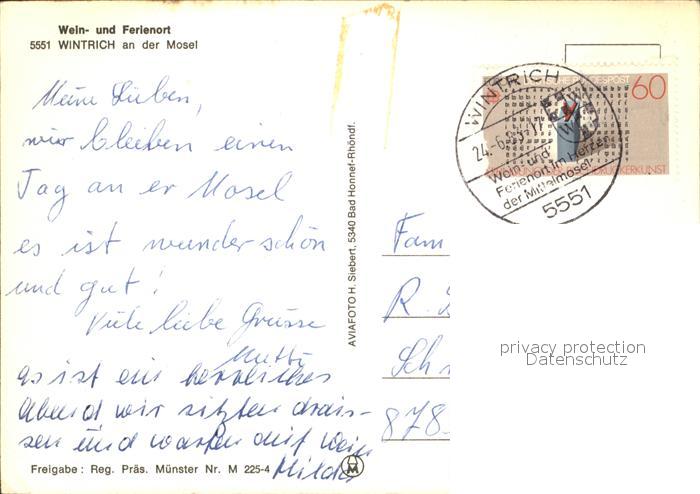 Wein- und Ferienort
5551 WINTRICH an der Mosel
Meine Lieben,
wir bleiben einen
Tag an er Mosel
es ist wunderschön
und gut!
Viele liebe Grüsse
Mutti
es ist ein herrliches
Abend wir sitzen draus-
sen und warten auf Wein
Milde
Freigabe: Reg. Präs. Münster Nr. M 225-4
AVIAFOTO H. Siebert, 5340 Bad Honnef-Rhöndf.
WINTRICH
24.-6.
Wein- und
Ferienort im Herzen
der Mittelmosel
5551
BUNDESPOST 60
Fam
R.
Sch
878
privacy protection
Datenschutz